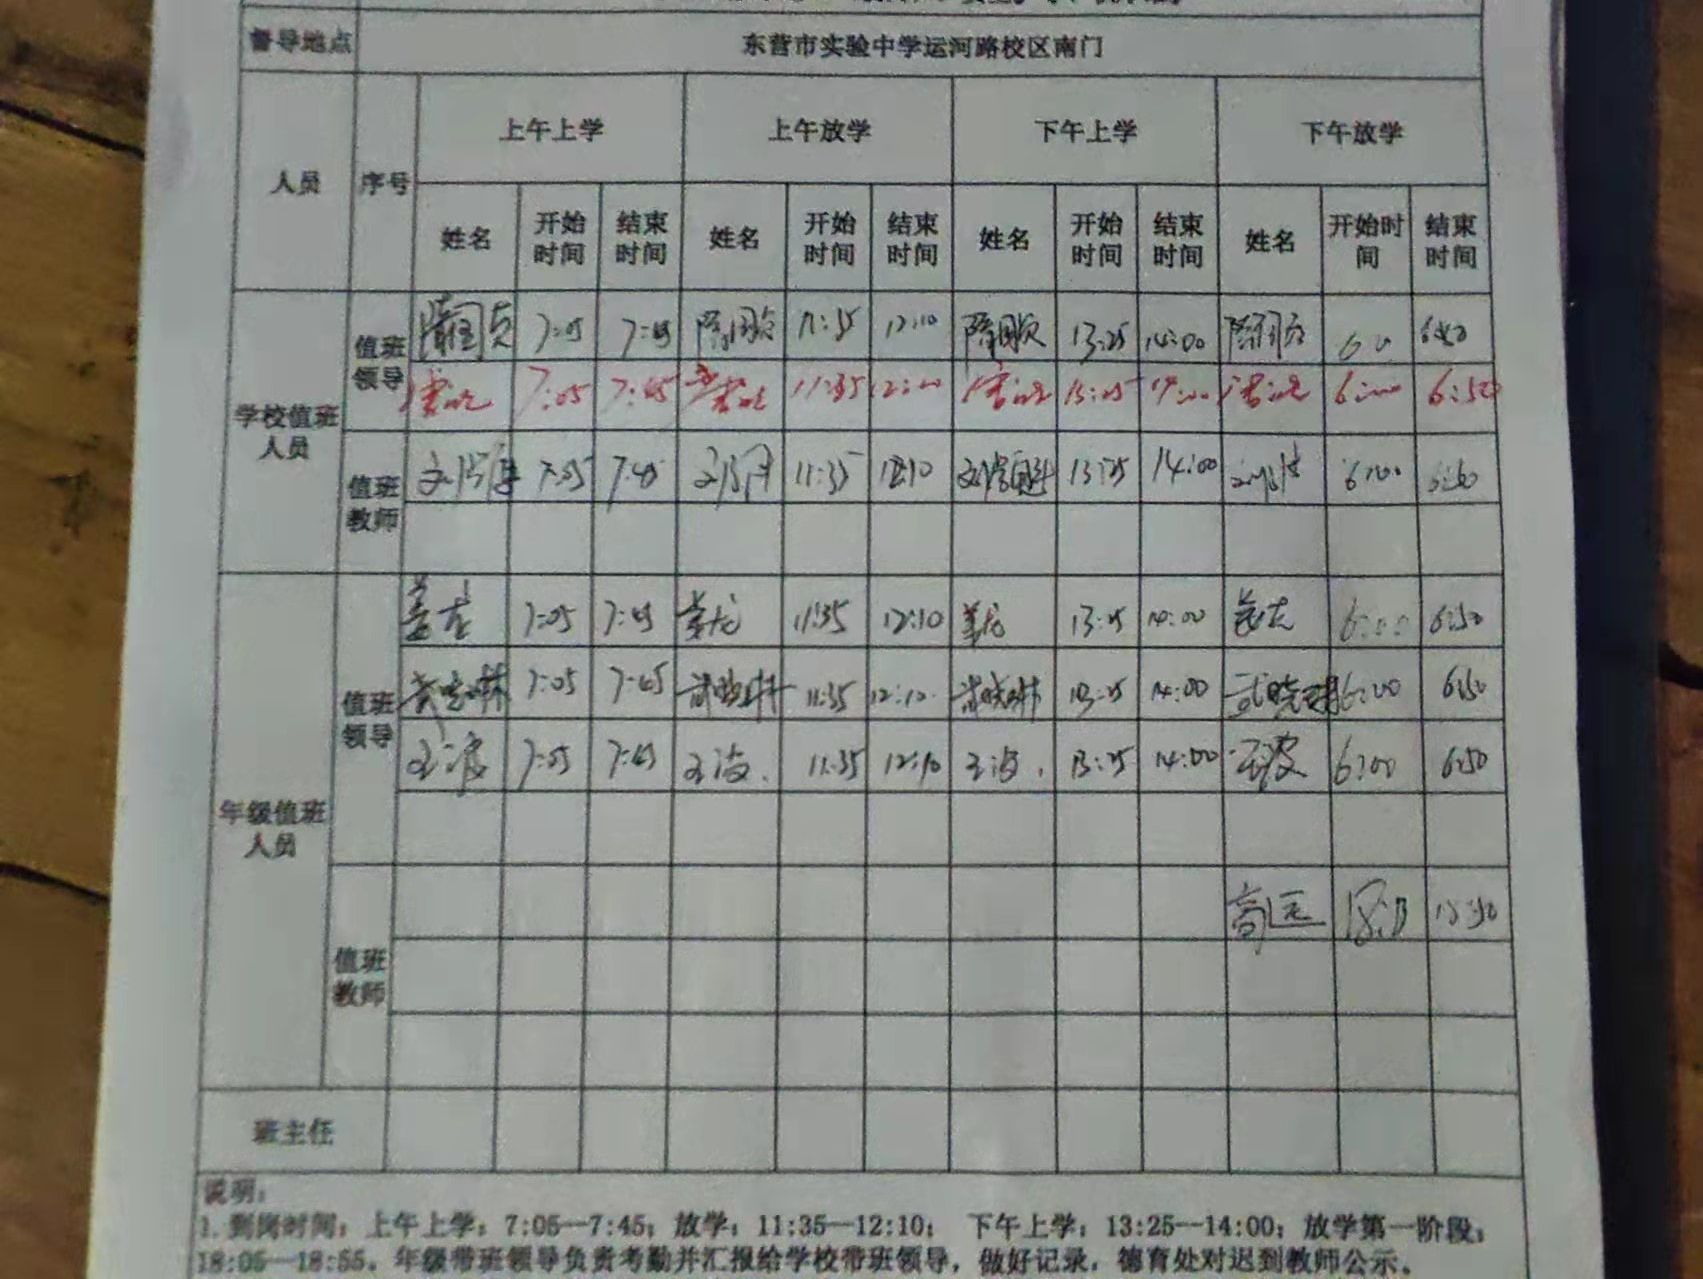 督导地点 东营市实验中学运河路校区南门
人员 序号 上午上学 上午放学 下午上学 下午放学
姓名 开始时间 结束时间 姓名 开始时间 结束时间 姓名 开始时间 结束时间 姓名 开始时间 结束时间
学校值班人员
值班领导
7:05 7:45 11:35 12:10 13:25 14:00
7:05 7:45 11:35 13:25 6:00 6:50
值班教师
7:05 7:45 11:35 13:25 14:00 6:00
年级值班人员
值班领导
姜龙 7:05 7:45 姜龙 11:35 12:10 姜龙 13:25 14:00 姜龙 6:00 6:50
武晓琳 7:05 7:45 武晓琳 11:35 12:10 武晓琳 13:25 14:00 武晓琳 6:00 6:50
王波 7:05 7:45 王波 11:35 12:10 王波 13:25 14:00 王波 6:00 6:50
值班教师
高远
班主任
说明:
1. 到岗时间:上午上学:7:05—7:45;放学:11:35—12:10; 下午上学:13:25—14:00;放学第一阶段:
18:05—18:55。年级带班领导负责考勤并汇报给学校带班领导,做好记录,德育处对迟到教师公示。